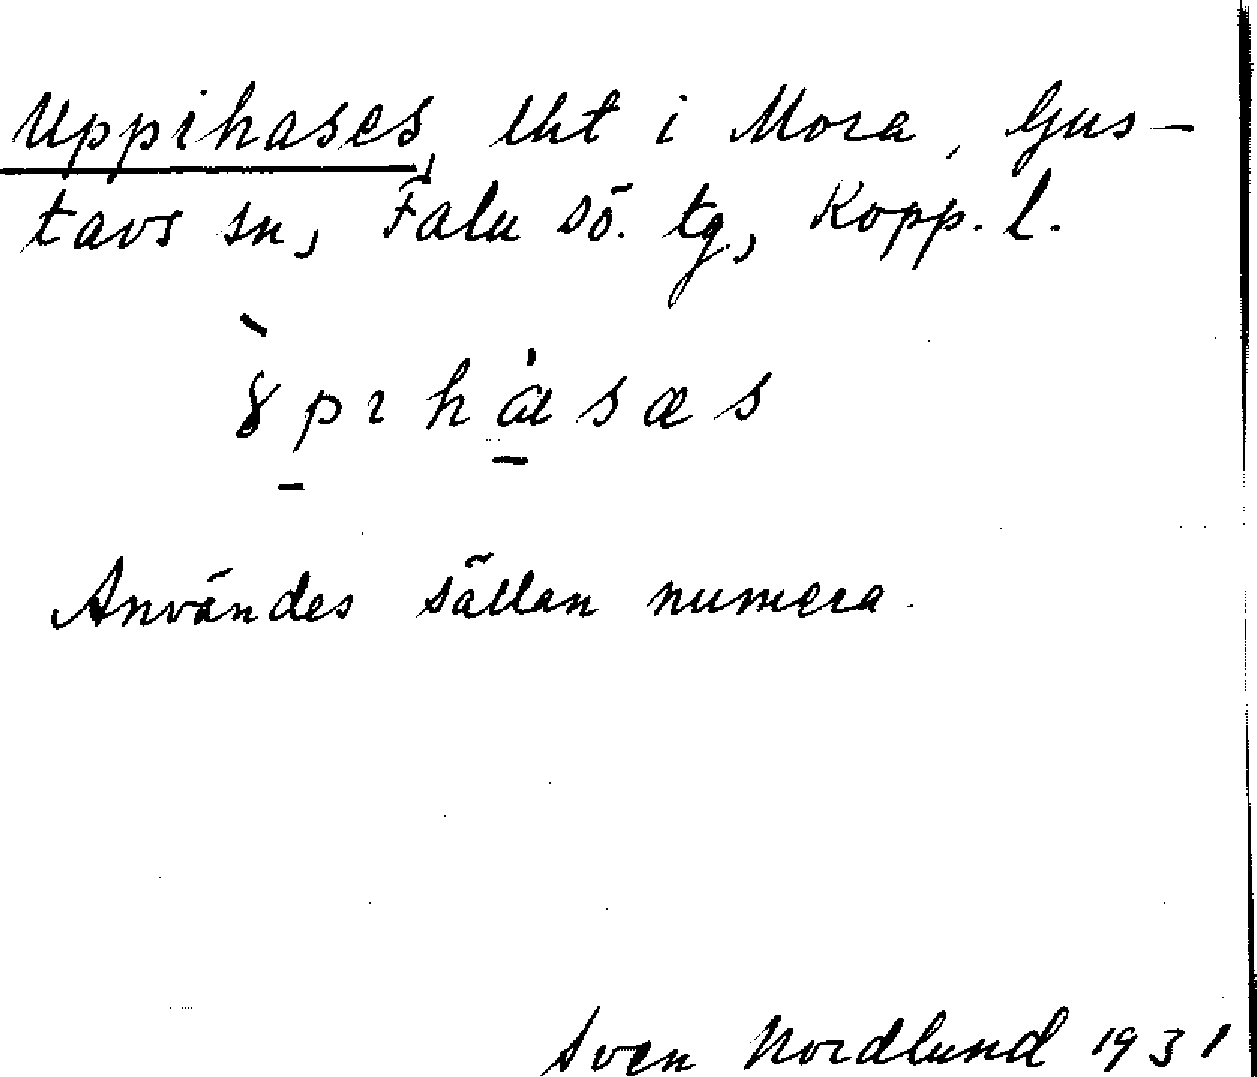 Uppihases, lht i Mora, Gus-
tavs sn, Falu sö. tg, Kopp. l.
Användes sällan numera.
Sven Nordlund 1931